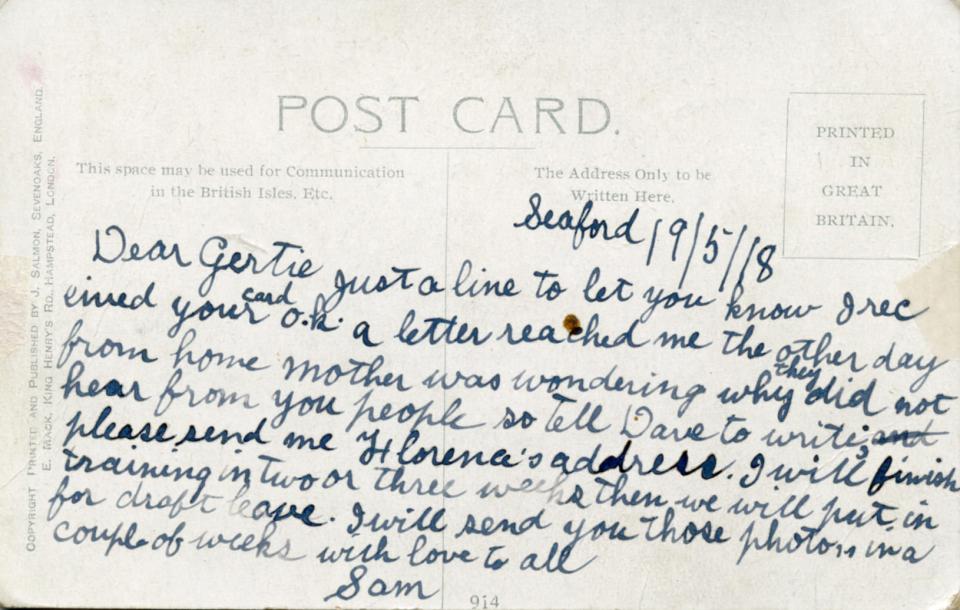 POST CARD.
This space may be used for Communication
in the British Isles, Etc.
The Address Only to be
Written Here.
PRINTED
IN
GREAT
BRITAIN.
COPYRIGHT PRINTED AND PUBLISHED BY J. SALMON, SEVENOAKS, ENGLAND.
E. MACK, KING HENRY'S RD, HAMPSTEAD, LONDON.
Seaford 19/5/18
Dear Gertie Just a line to let you know I rec
eived your card O.K. a letter reached me the other day
from home Mother was wondering why they did not
hear from you people so tell Dave to write, and
please send me Florence's address. I will finish
training in two or three weeks then we will put in
for draft leave. I will send you those photos in a
couple of weeks with love to all
Sam
914